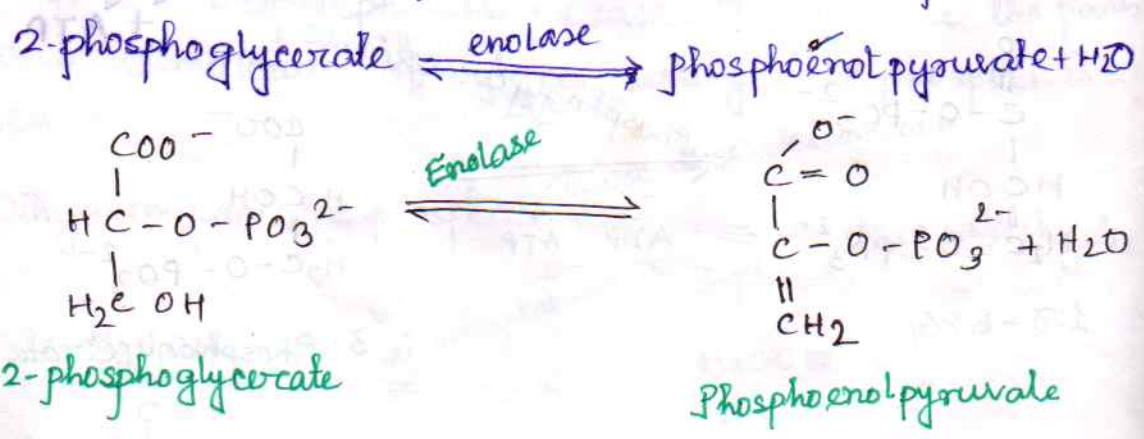 2-phosphoglycerate ⇌ enolase phosphoenolpyruvate + H2O
COO⁻ Enolase O⁻
C = O
HC - O - PO3²⁻ ⇌ C - O - PO3²⁻ + H2O
H2C OH CH2
2-phosphoglycerate Phosphoenolpyruvate